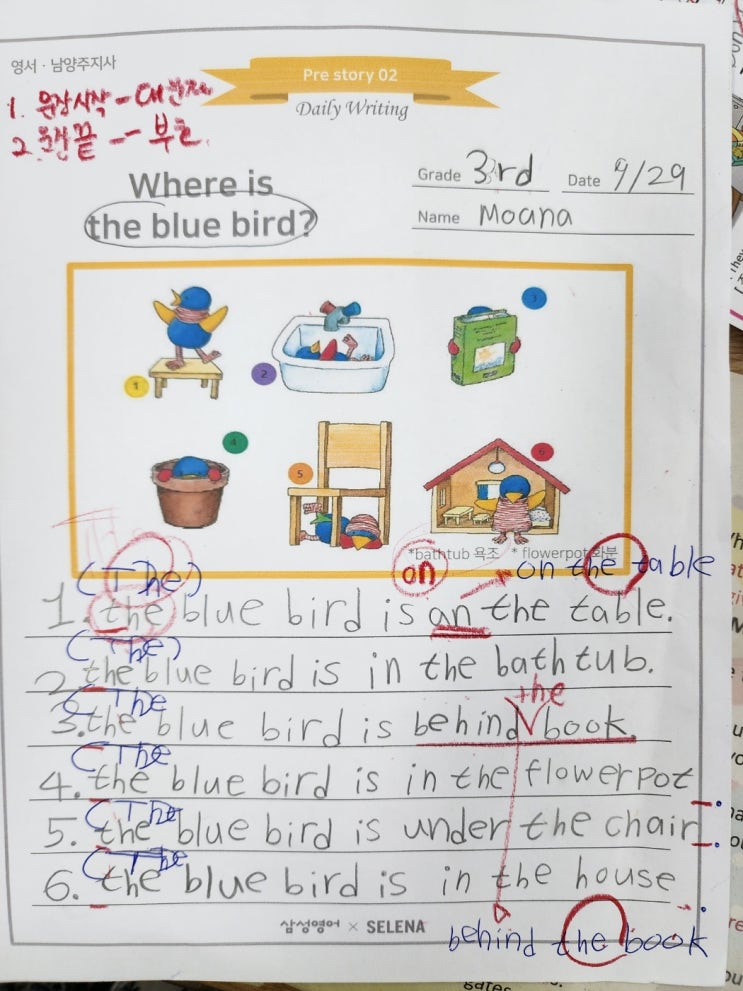 영서·남양주지사
Pre story 02
Daily Writing
1. 문장시작 - 대문자
2. 문장끝 - 부호.
Where is
the blue bird?
Grade 3rd Date 9/29
Name Moana
1
2
3
4
5
6
*bathtub 욕조 * flowerpot 화분
(The) on on the table
1. the blue bird is an the table.
(The)
2. the blue bird is in the bathtub.
(The the
3. the blue bird is behind book.
(The
4. the blue bird is in the flowerpot.
(The
5. the blue bird is under the chair.
(The
6. the blue bird is in the house.
삼성영어 × SELENA
behind the book